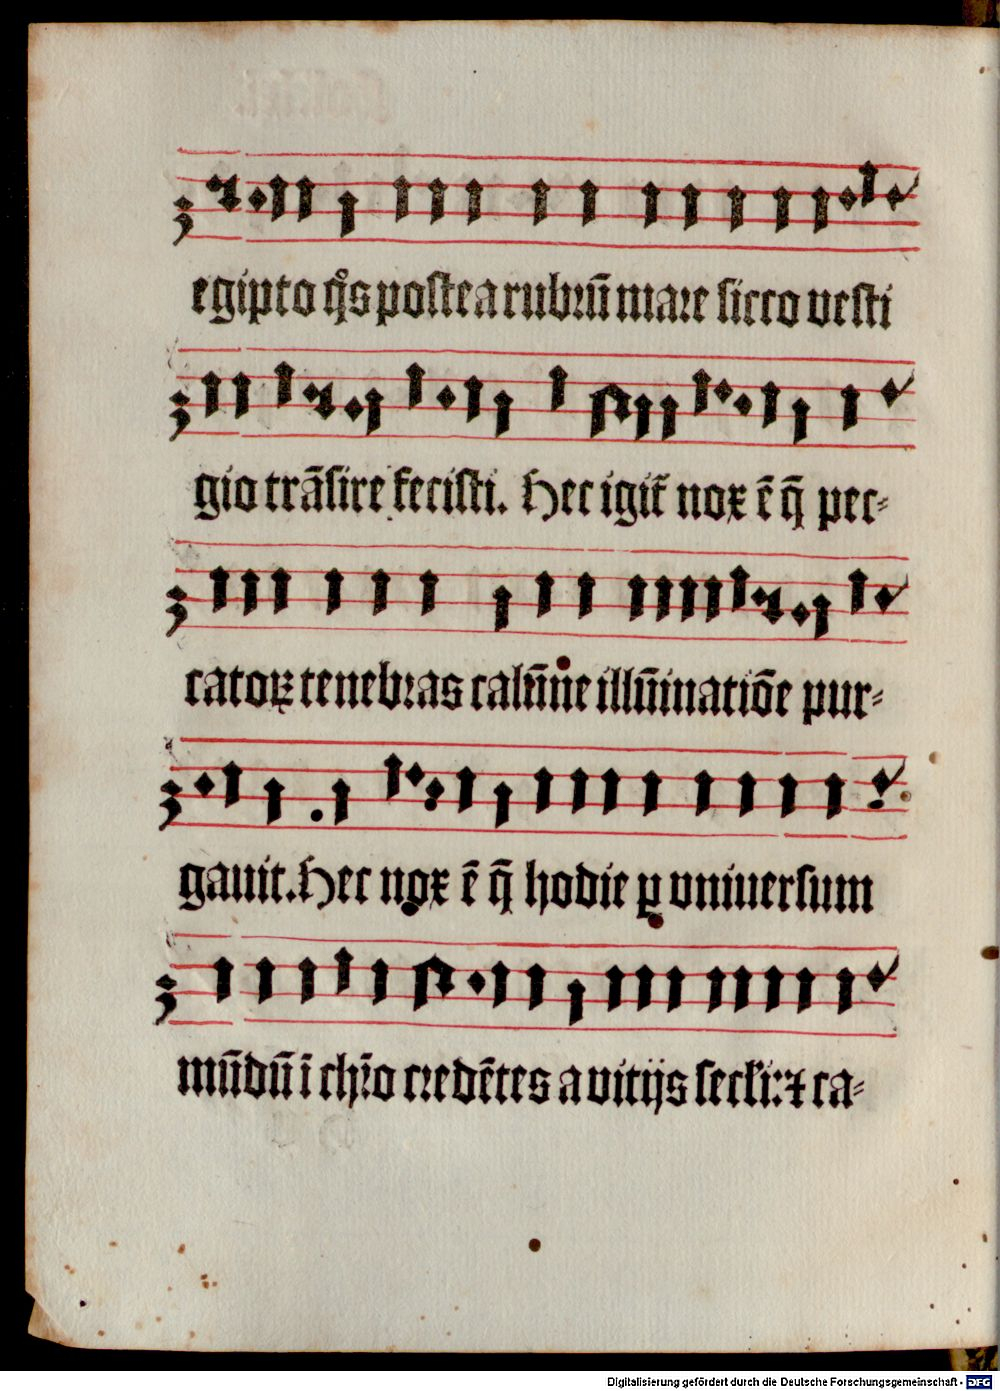 egipto q̊s postea rubrū mare sicco vesti
gio trāsire fecisti. Hec igit̄ nox ē q̄ pec-
catoꝝ tenebras calūne illūinatiōe pur-
gauit. Hec nox ē q̄ hodie ꝑ vniuersum
mūdū ī chr̄o credētes a vitijs secłi: ⁊ ca-
Digitalisierung gefördert durch die Deutsche Forschungsgemeinschaft - DFG